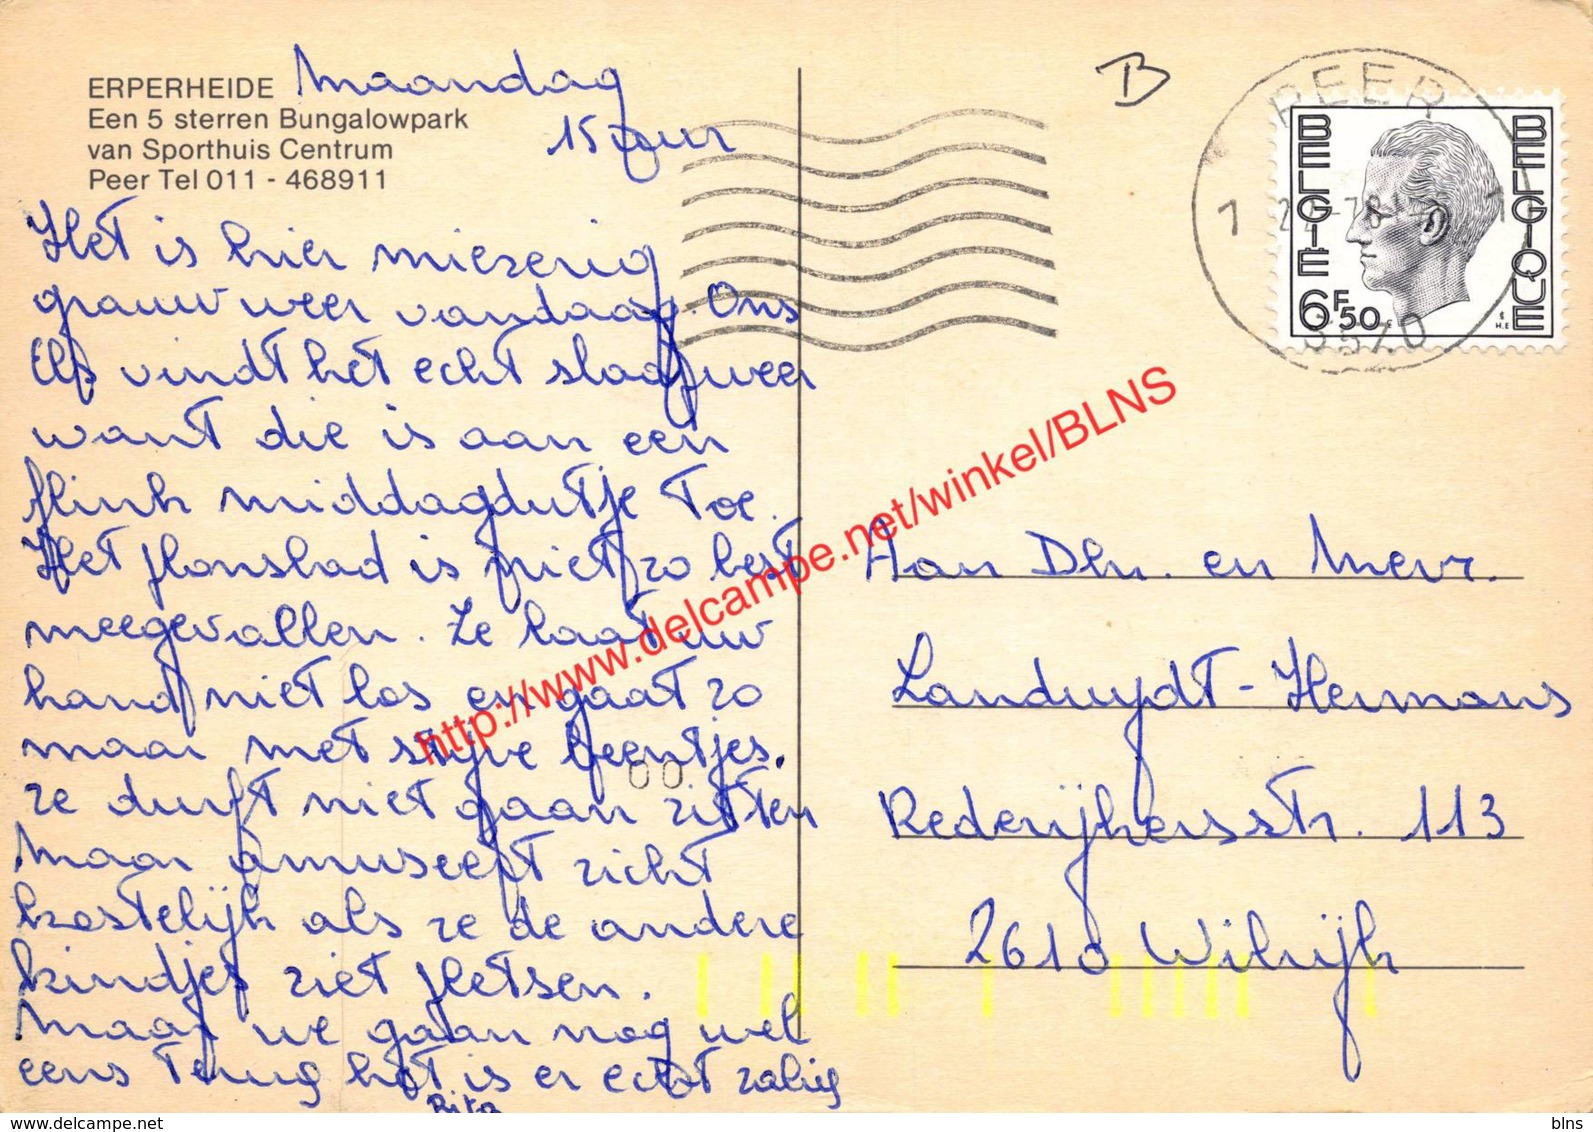 ERPERHEIDE
Een 5 sterren Bungalowpark
van Sporthuis Centrum
Peer Tel 011 - 468911
Maandag
15 uur
Het is hier miezerig
grauw weer vandaag. Ons
Els vindt het echt slaapweer
want die is aan een
flink middagdutje toe.
Het plonsbad is niet zo best
meegevallen. Ze laat uw
hand niet los en gaat zo
maar met stijve beentjes.
ze durft niet gaan zitten
Maar amuseert zicht
kostelijk als ze de andere
kindjes ziet fletsen.
Maar we gaan nog wel
eens terug het is er echt zalig
Rita
B
PEER
3570
BELGIE
BELGIQUE
6F50
00
Aan Dhr. en Mevr.
Landuydt-Hermans
Rederijkersstr. 113
2610 Wilrijk
http://www.delcampe.net/winkel/BLNS
www.delcampe.net
blns